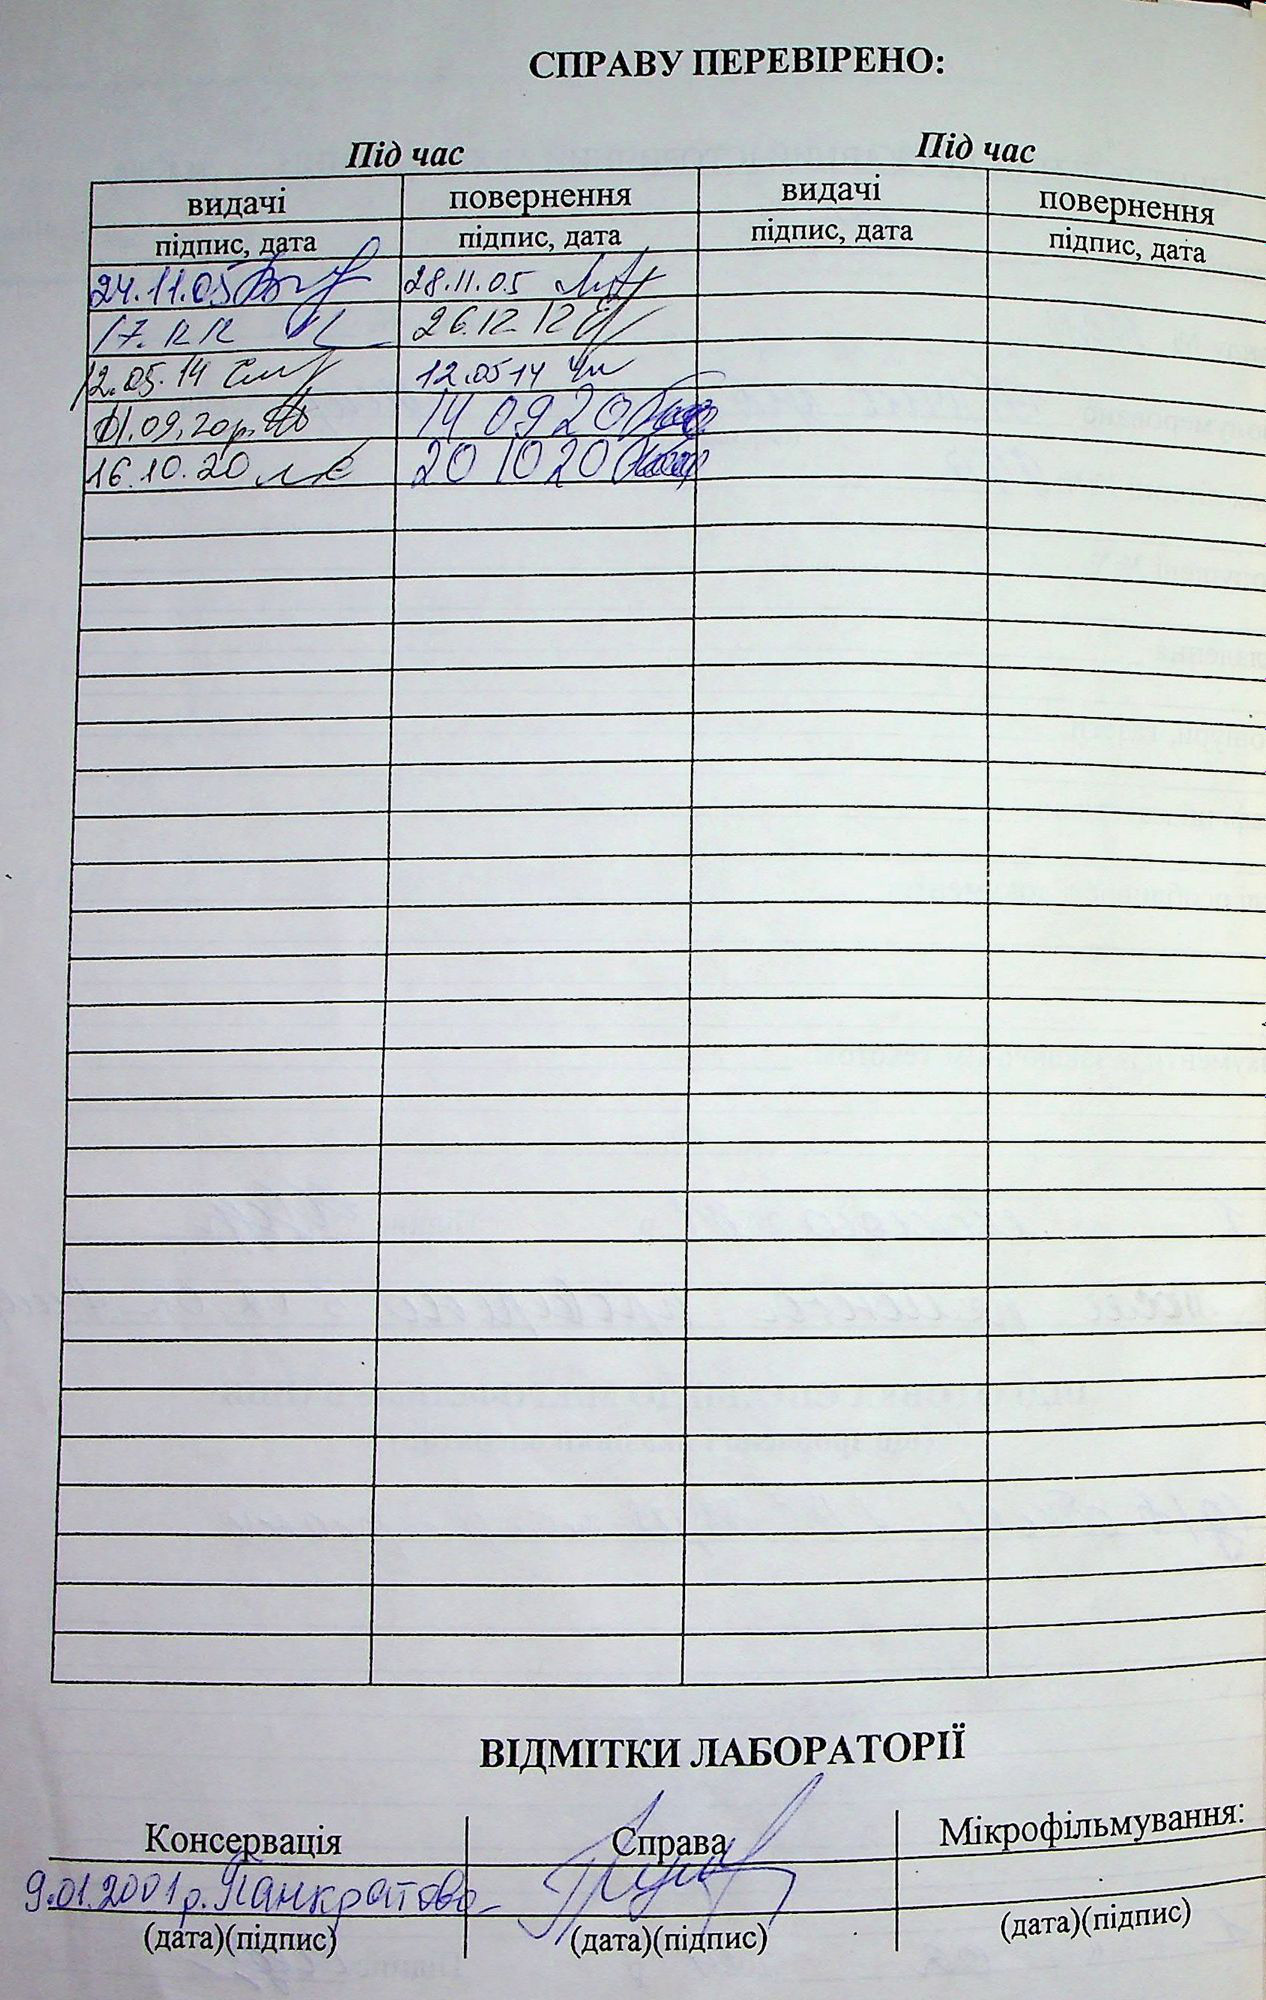 СПРАВУ ПЕРЕВІРЕНО:
Під час Під час
видачі повернення видачі повернення
підпис, дата підпис, дата підпис, дата підпис, дата
24.11.05 28.11.05
17.12.12 26.12.12
12.05.14 12.05 14
01.09.20р. 14 09 20
16.10.20 20 10 20
ВІДМІТКИ ЛАБОРАТОРІЇ
Консервація Справа Мікрофільмування:
9.01.2001р. Панкратова
(дата)(підпис) (дата)(підпис) (дата)(підпис)